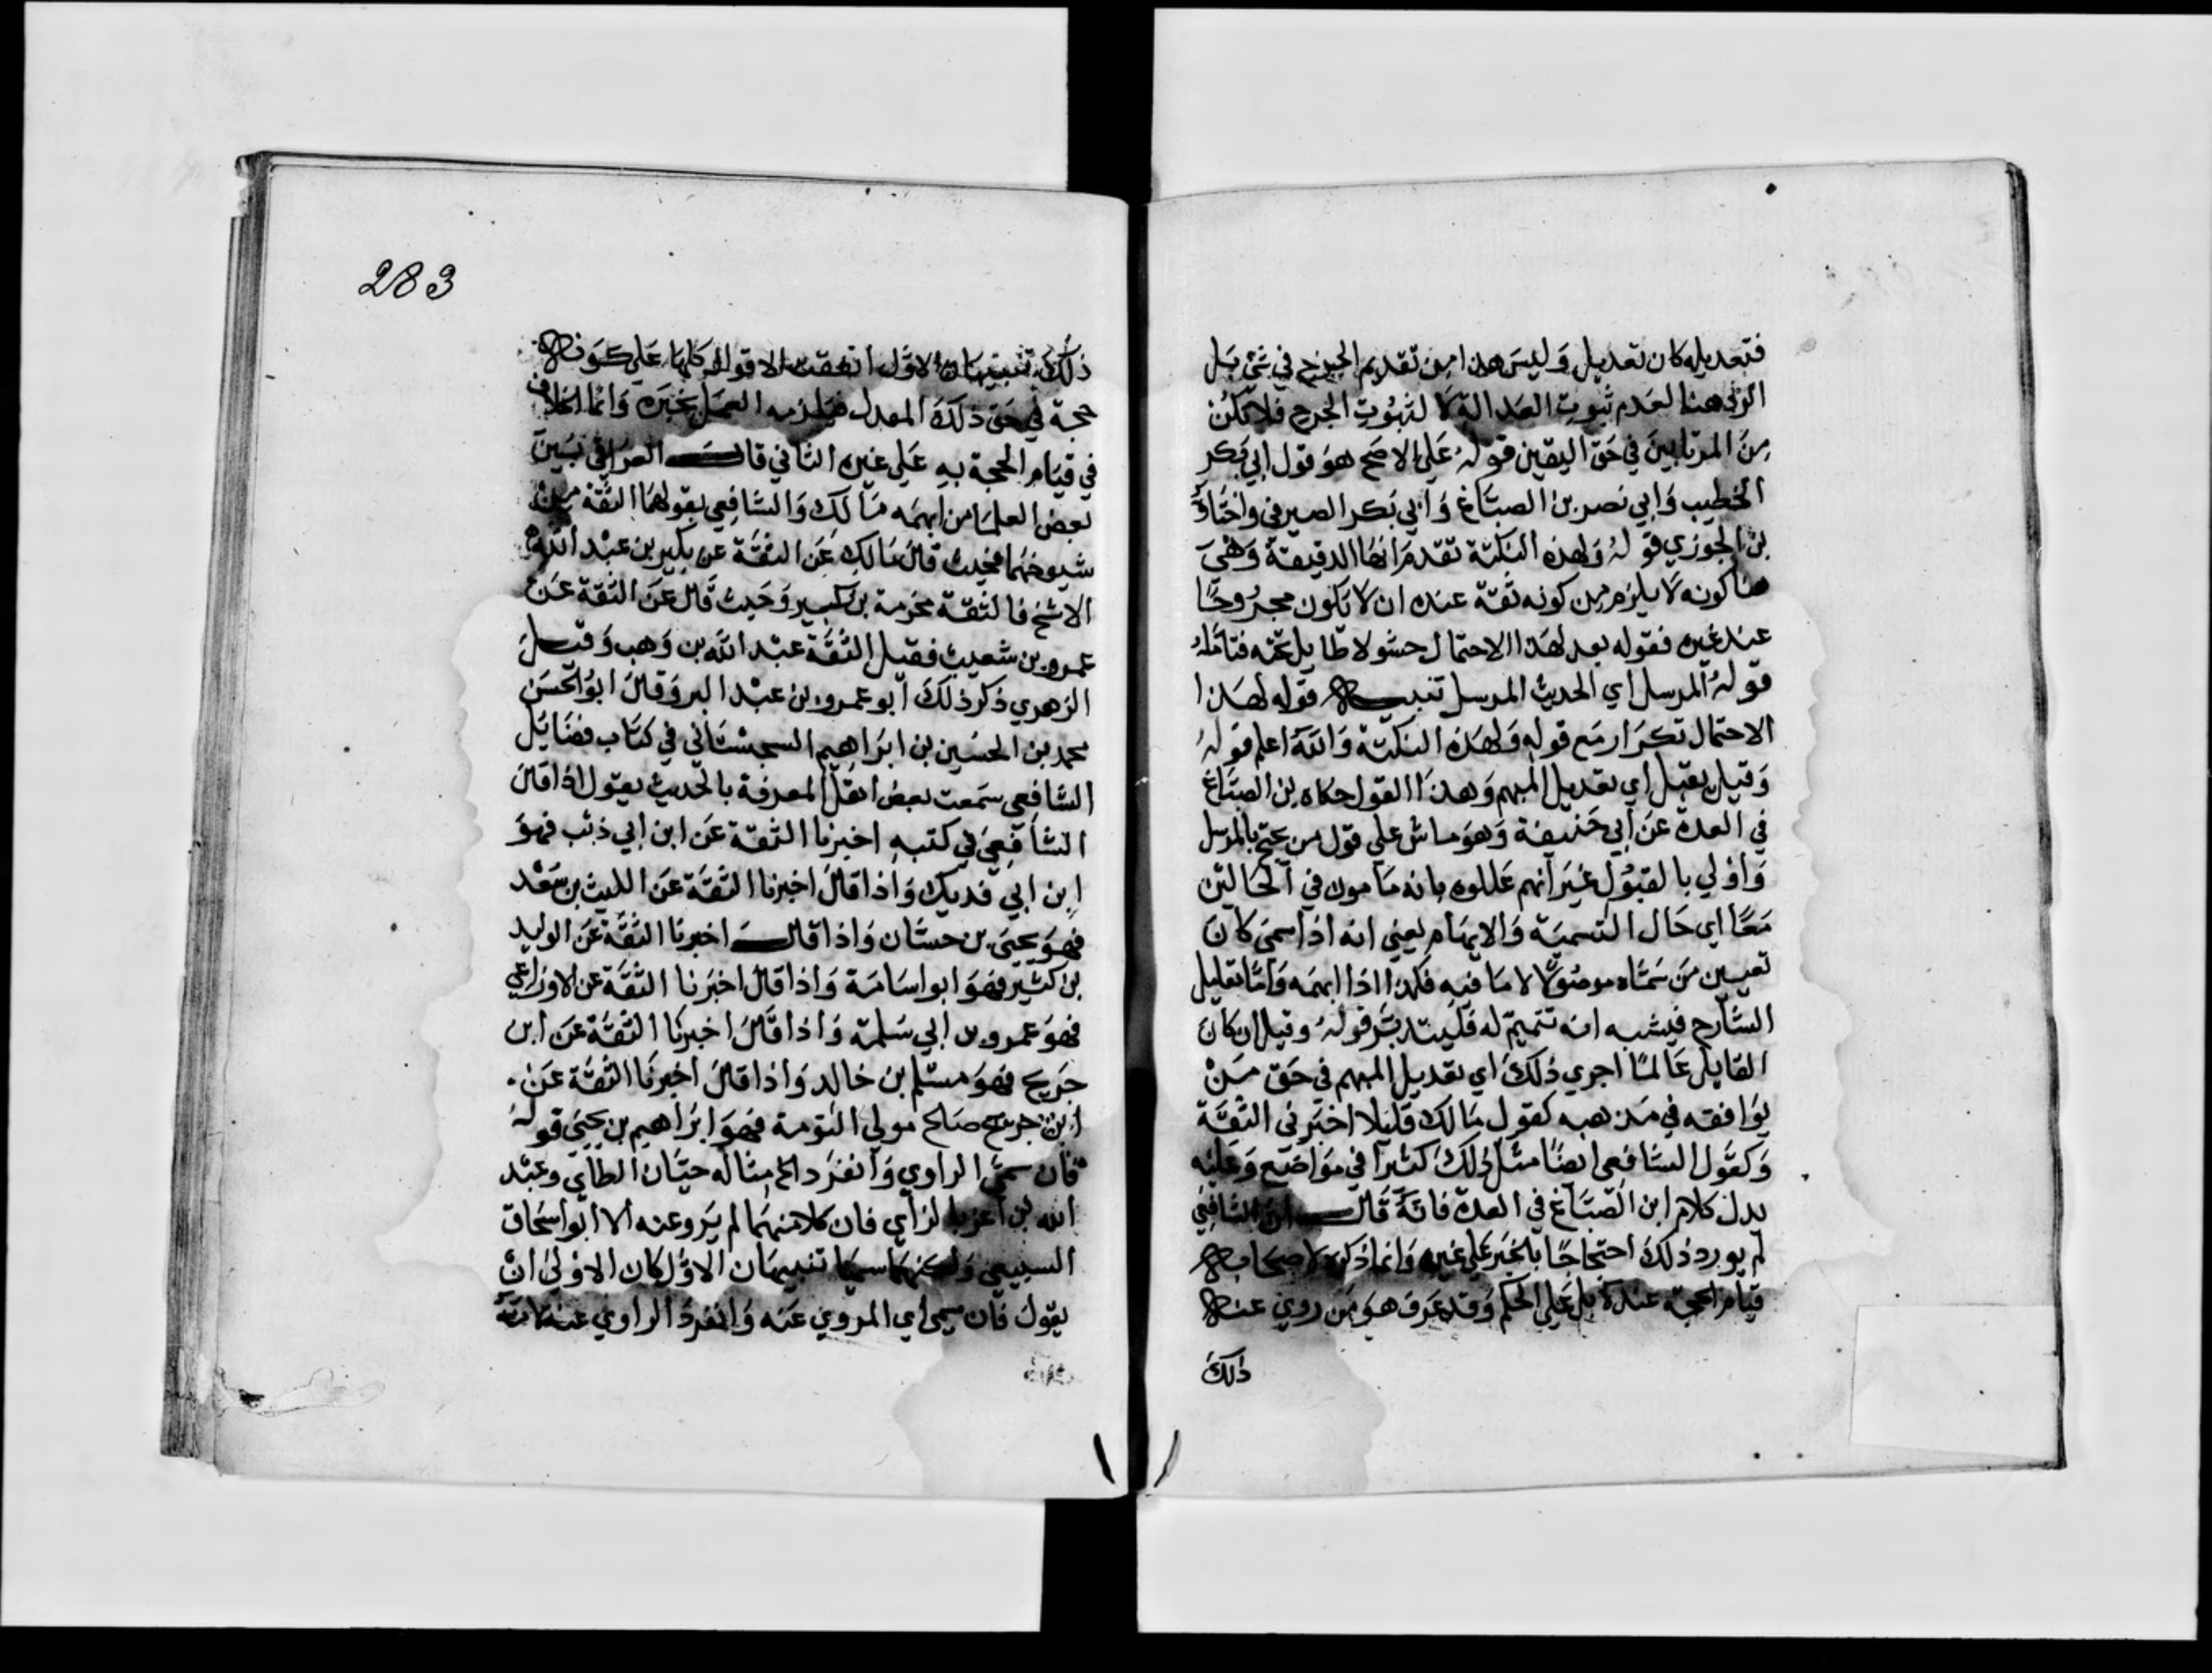 فتعديله كان تعديل وليس هذا من تقديم الجرح في شيء بل
الرد هنا لعدم ثبوت العدالة لا لثبوت الجرح فلا تكن
من المرتابين في حق اليقين قوله على الاصح هو قول ابي بكر
الخطيب وابي نصر بن الصباغ وابي بكر الصيرفي واختاره
بن الجوزي قوله ولهذه النكتة تقدم انها الدقيقة وهي
هنا كونه لا يلزم من كونه ثقة عنده ان لا يكون مجروحًا
عند غيره فقوله بعد لهذا الاحتمال حشو لا طايل تحته فتامله
قوله المرسل اي الحديث المرسل تنبيه قوله لهذا
الاحتمال تكرار مع قوله ولهذه النكتة والله اعلم قوله
وقيل يقبل اي تعديل المبهم وهذا القول حكاه بن الصباغ
في العدة عن ابي حنيفة وهو ماش على قول من يحتج بالمرسل
واولي بالقبول غير انهم عللوه بانه مامون في الحالتين
معًا اي حال التسمية والابهام يعني انه اذا سمى كان
تعيين من سماه موصولا لا ما فيه فكذا اذا ابهمه واما تعليل
الشارح فيشبه انه تتميم له فليتدبر قوله وقيل ان كان
القايل عالمًا اجري ذلك اي تعديل المبهم في حق من
يوافقه في مذهبه كقول مالك قليلا اخبرني الثقة
وكقول الشافعي ايضًا مثل ذلك كثيرا في مواضع وعليه
يدل كلام ابن الصباغ في العدة فانه قال ان الشافعي
لم يورد ذلك احتجاجًا بالخبر على غيره وانما ذكره لاصحابه
قيام الحجة عنده بل علي الحكم وقد عرف هو من روي عنه
ذلك
283
ذلك تنبيهان الاول اتفقت الاقوال كلها على كونه
حجة في حق ذلك المعدل فيلزمه العمل بخبره وانما الخلاف
في قيام الحجة به علي غيره الثاني قال العراقي بين
بعض العلما من ابهمه مالك والشافعي بقولهما الثقة من
شيوخهما فحيث قال مالك عن الثقة عن بكير بن عبد الله
الاشج فالثقة مخرمة بن بكير وحيث قال عن الثقة عن
عمرو بن شعيب فقيل الثقة عبد الله بن وهب وقيل
الزهري ذكر ذلك ابو عمرو بن عبد البر وقال ابو الحسن
محمد بن الحسين بن ابراهيم السجستاني في كتاب فضايل
الشافعي سمعت بعض اهل المعرفة بالحديث يقول اذا قال
الشافعي في كتبه اخبرنا الثقة عن ابن ابي ذئب فهو
ابن ابي فديك واذا قال اخبرنا الثقة عن الليث بن سعد
فهو يحيى بن حسان واذا قال اخبرنا الثقة عن الوليد
بن كثير فهو ابو اسامة واذا قال اخبرنا الثقة عن الاوزاعي
فهو عمرو بن ابي سلمة واذا قال اخبرنا الثقة عن ابن
جريج فهو مسلم بن خالد واذا قال اخبرنا الثقة عن
ابن جريج صالح مولي التومة فهو ابراهيم بن يحيى قوله
فان سمى الراوي وانفرد الخ مثاله حيان الطاي وعبد
الله بن اعز الرازي فان كلا منهما لم يرو عنه الا ابو اسحاق
السبيعي ولكنهما سميا تنبيهان الاول كان الاولى ان
يقول فان سمى اي المروي عنه وانفرد الراوي عنه لانه